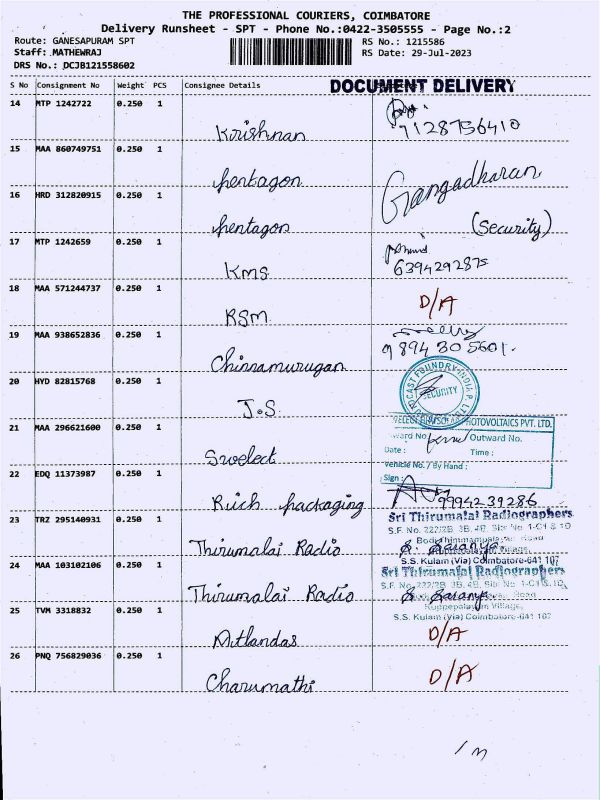 THE PROFESSIONAL COURIERS, COIMBATORE
Delivery Runsheet - SPT - Phone No.:0422-3505555 - Page No.:2
Route: GANESAPURAM SPT
RS No.: 1215586
Staff: MATHEWRAJ
RS Date: 29-Jul-2023
DRS No.: DCJB121558602
S No Consignment No Weight PCS Consignee Details DOCUMENT DELIVERY
14 MTP 1242722 0.250 1
Krishnan 7128756410
15 MAA 860749751 0.250 1
pentagon Gangadharan
16 HRD 312820915 0.250 1
pentagon (Security)
17 MTP 1242659 0.250 1
KMS 6394292875
18 MAA 571244737 0.250 1
RSM D/A
19 MAA 938652836 0.250 1
Chinnamurugan 9894305601.
20 HYD 82815768 0.250 1
J.S. SECURITY
21 MAA 296621600 0.250 1
PHOTOVOLTAICS PVT. LTD.
Outward No.
Date : Time :
Vehicle No. / By Hand :
Sign :
Swelect
22 EDQ 11373987 0.250 1
Ruch packaging 9994239286
23 TRZ 295140931 0.250 1
Sri Thirumalai Radiographers
Thirumalai Radio S. Saranya
S.S. Kulam (Via) Coimbatore-641 107
24 MAA 103102106 0.250 1
Sri Thirumalai Radiographers
Thirumalai Radio S. Saranya
Kuppepalayam Village,
S.S. Kulam (Via) Coimbatore-641 107
25 TVM 3318832 0.250 1
Mitlandas D/A
26 PNQ 756829036 0.250 1
Charumathi D/A